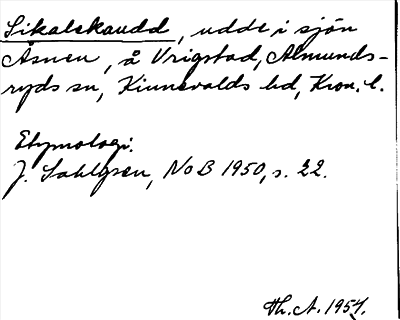 Sikalskaudd, udde i sjön
Åsnen, å Vrigstad, Almunds-
ryds sn, Kinnevalds hd, Kron. l.
Etymologi.
J. Sahlgren, NoB 1950, s. 22.
Th. A. 1957.